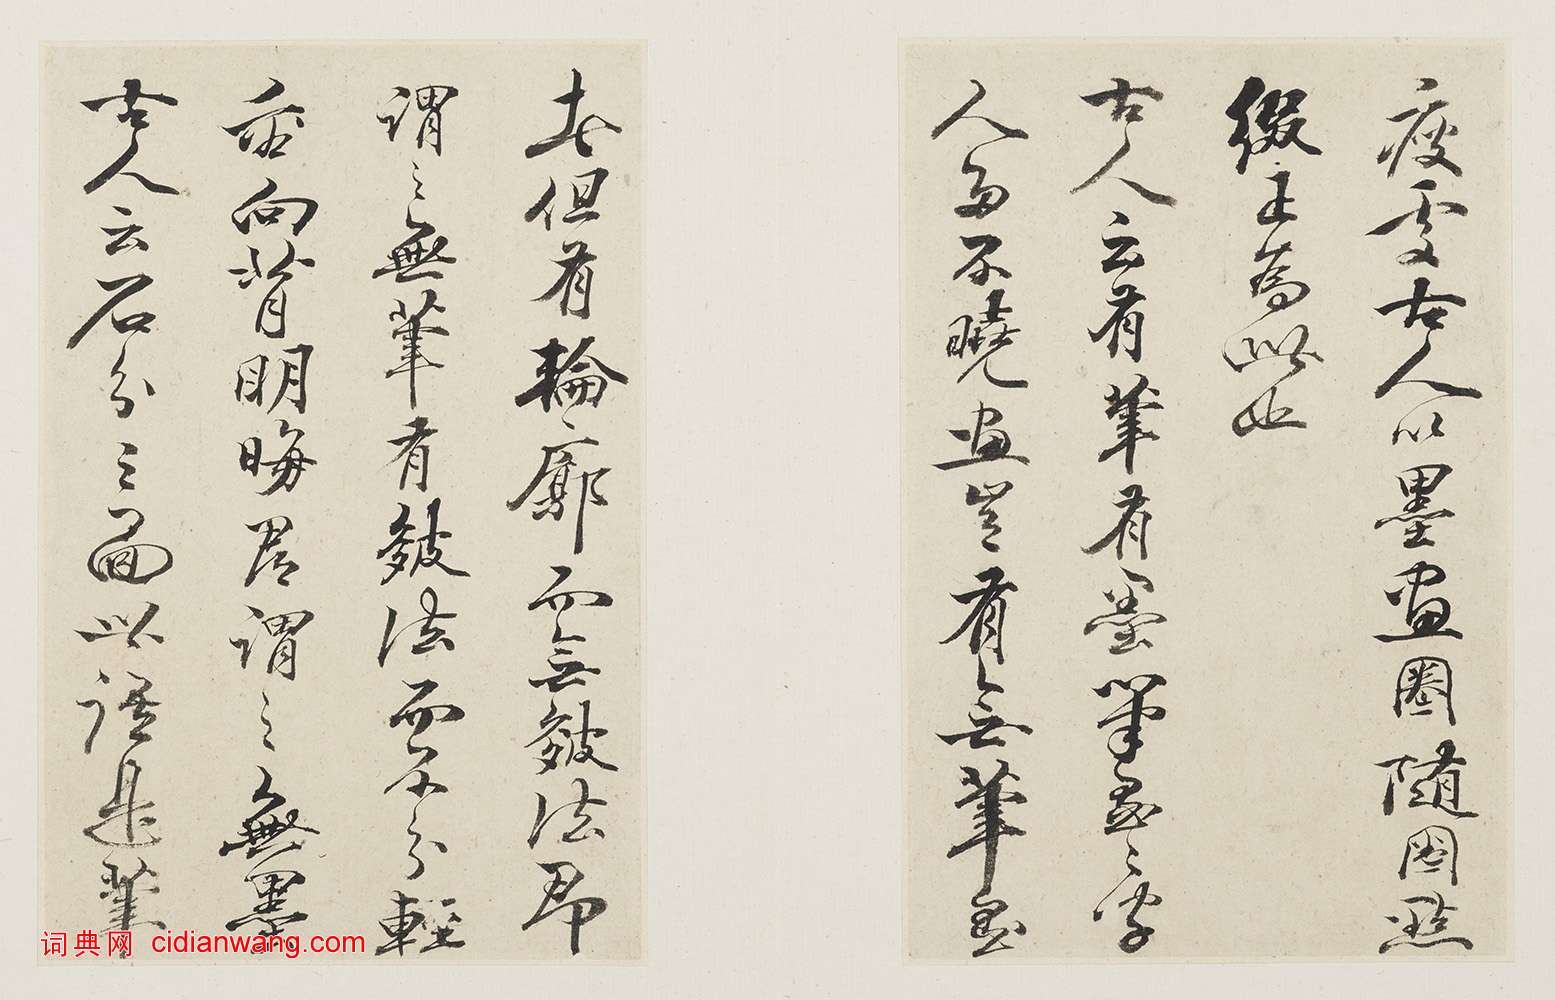 瘦處古人以墨畫圈隨圈點
綴正為此也
古人云有筆有墨筆墨二字
人多不曉畫豈有無筆墨
者但有輪廓而無皴法即
謂之無筆有皴法而不分輕
重向背明晦即謂之無墨
古人云石分三面此語是筆
词典网 cidianwang.com